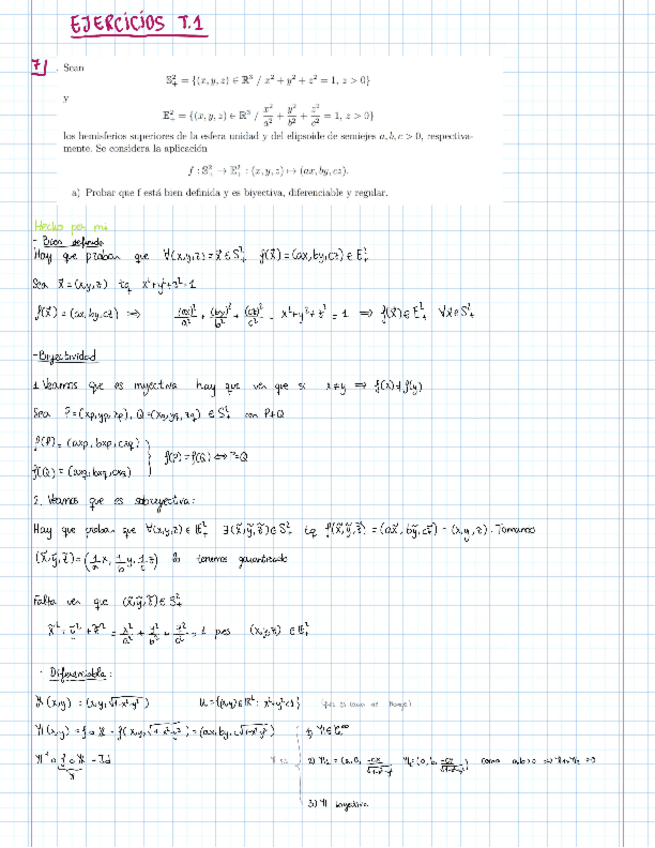 EJERCICIOS T.1
7| . Sean
S²₊ = {(x, y, z) ∈ R³ / x² + y² + z² = 1, z > 0}
y
E²₊ = {(x, y, z) ∈ R³ / x²/a² + y²/b² + z²/c² = 1, z > 0}
los hemisferios superiores de la esfera unidad y del elipsoide de semiejes a, b, c > 0, respectiva-
mente. Se considera la aplicación
f : S²₊ → E²₊ : (x, y, z) ↦ (ax, by, cz).
a) Probar que f está bien definida y es biyectiva, diferenciable y regular.
Hecho por mi
- Bien definida
Hay que probar que ∀(x,y,z) = x⃗ ∈ S²₊ f(x⃗) = (ax, by, cz) ∈ E²₊
Sea x⃗ = (x,y,z) tq x²+y²+z²=1
f(x⃗) = (ax, by, cz) ⇒ (ax)²/a² + (by)²/b² + (cz)²/c² = x²+y²+z² = 1 ⇒ f(x⃗) ∈ E²₊ ∀x∈S²₊
- Biyectividad
1. Veamos que es inyectiva hay que ver que si x≠y ⇒ f(x)≠f(y)
Sea P=(xp,yp,zp), Q=(xq,yq,zq) ∈ S²₊ con P≠Q
f(P) = (axp, bxp, cxp)
f(P) = f(Q) ⇔ P=Q
f(Q) = (axq, bxq, cxq)
2. Veamos que es sobreyectiva:
Hay que probar que ∀(x,y,z) ∈ E²₊ ∃(x̃,ỹ,z̃) ∈ S²₊ tq f(x̃,ỹ,z̃) = (ax̃, bỹ, cz̃) = (x,y,z). Tomamos
(x̃,ỹ,z̃) = (1/a x, 1/b y, 1/c z) lo tenemos garantizado
Falta ver que (x̃,ỹ,z̃) ∈ S²₊
x̃²+ỹ²+z̃² = x²/a² + y²/b² + z²/c² = 1 pues (x,y,z) ∈ E²₊
· Diferenciable:
X(x,y) = (x,y,√1-x²-y²) U = {(x,y)∈R²: x²+y²<1}
Y(x,y) = f∘X = f(x,y,√1-x²-y²) = (ax, by, c√1-x²-y²) 1) Y∈C^∞
Y⁻¹∘f∘X = Id 2) Y₁ = (a,0, -cx/√1-x²-y²) Y₂ = (0,b, -cy/√1-x²-y²) como a,b>0
3) Y inyectiva